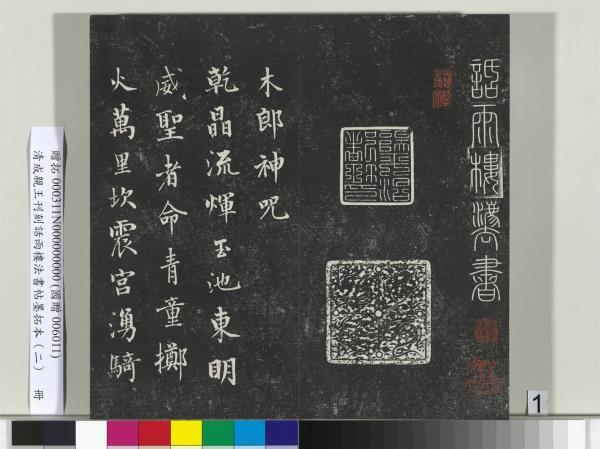 話雨樓灋書
木郎神咒
乾晶流煇玉池東明
威聖者命青童擲
火萬里坎震宮湧騎
贈拓 000311N000000000 (國贈 006011)
清成親王刊刻話雨樓法書帖墨拓本（二） 冊
1